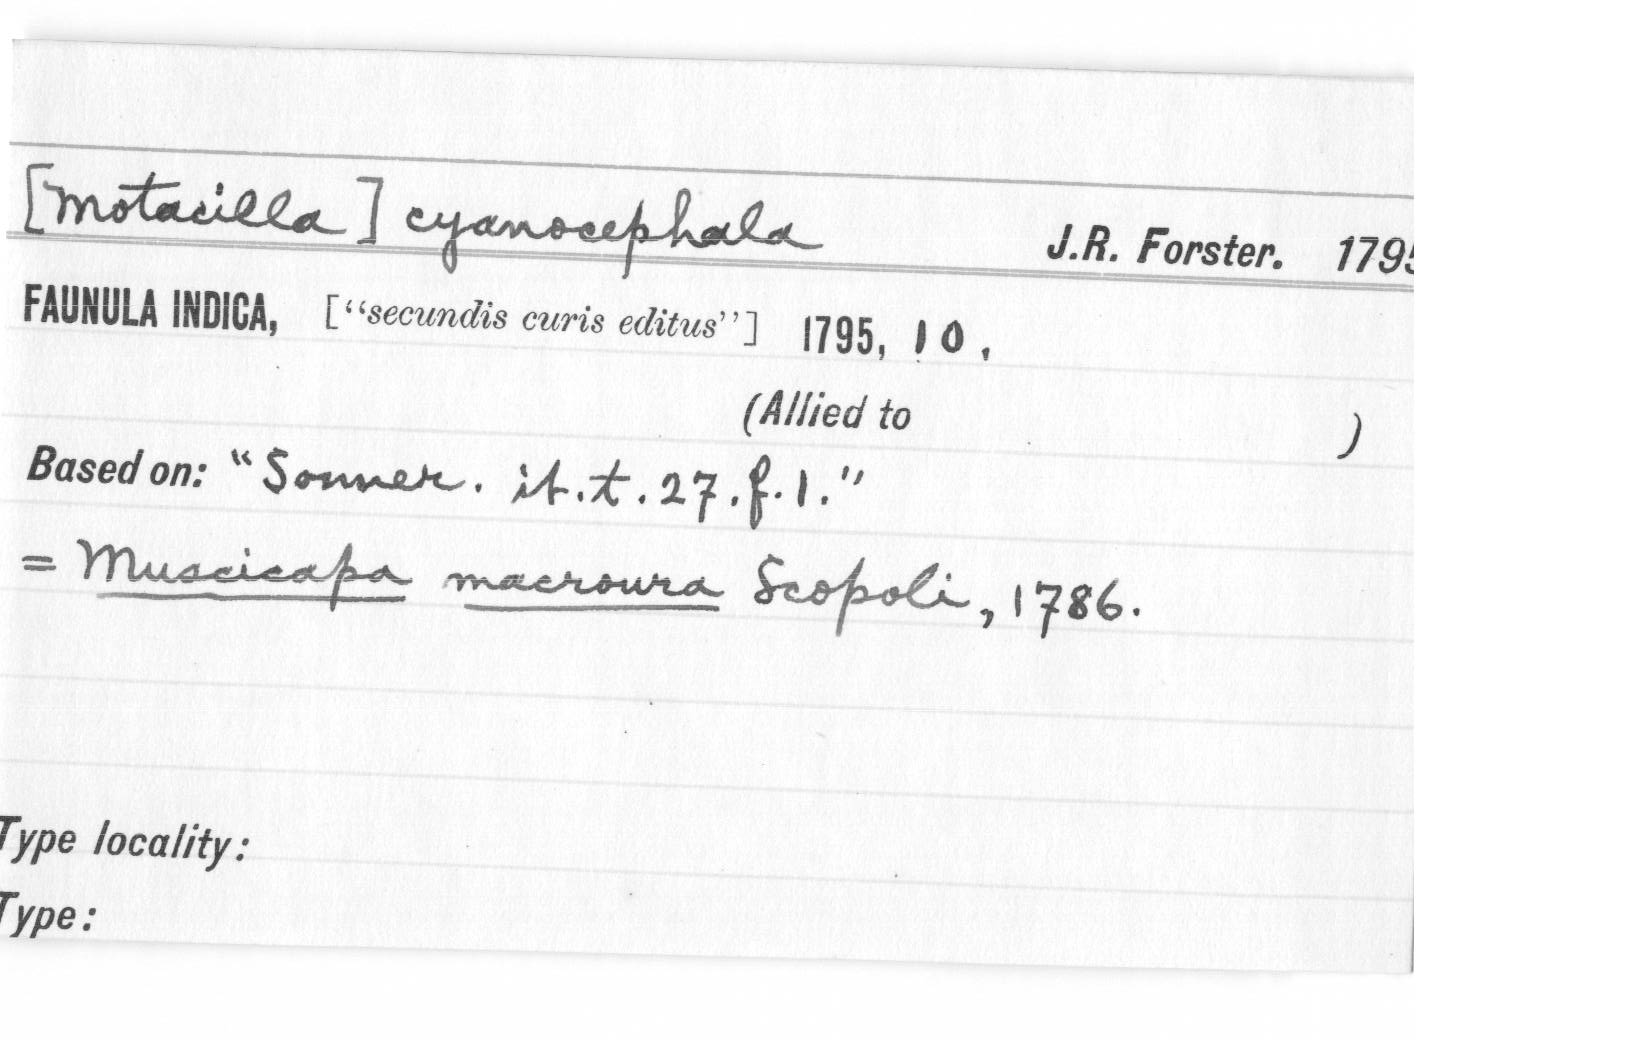 [Motacilla] cyanocephala J.R. Forster. 1795
FAUNULA INDICA, ["secundis curis editus"] 1795, 10.
(Allied to )
Based on: "Sonner. it. t. 27. f. 1."
= Muscicapa macroura Scopoli, 1786.
Type locality:
Type: